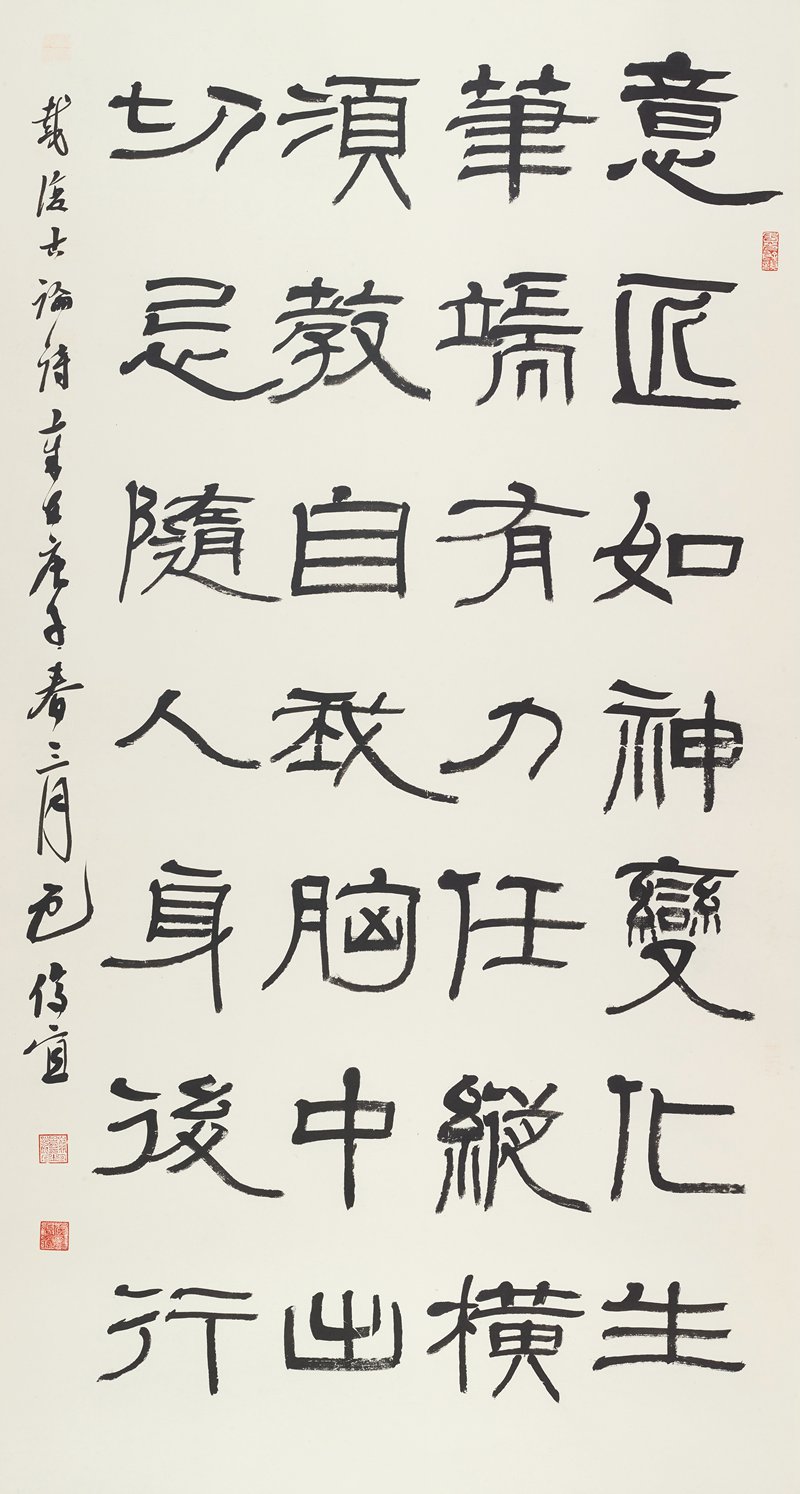 意匠如神變化生
筆端有力任縱橫
須教自我胸中出
切忌隨人身後行
戴復古論詩 庚子春三月包俊宜